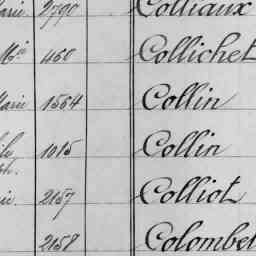 2790 Colliaux
Mie 460 Collichet
Marie 1564 Collin
1015 Collin
2157 Colliot
2158 Colombet